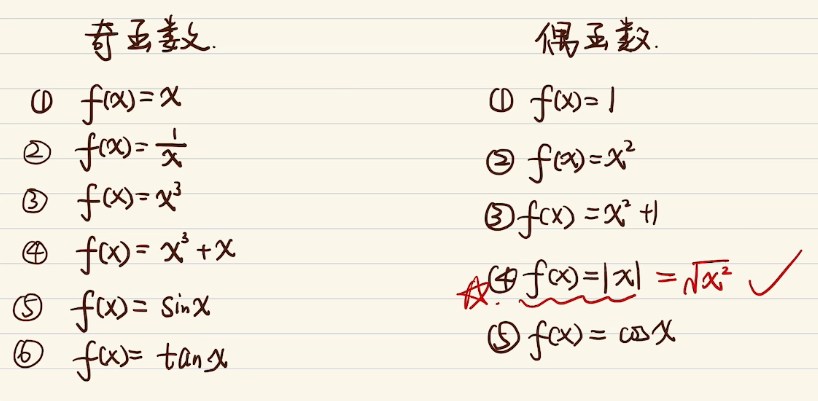 奇函数.
① f(x)=x
② f(x)=1/x
③ f(x)=x³
④ f(x)=x³+x
⑤ f(x)=sinx
⑥ f(x)=tanx
偶函数.
① f(x)=1
② f(x)=x²
③ f(x)=x²+1
☆④ f(x)=|x| =√x² ✓
⑤ f(x)=cosx